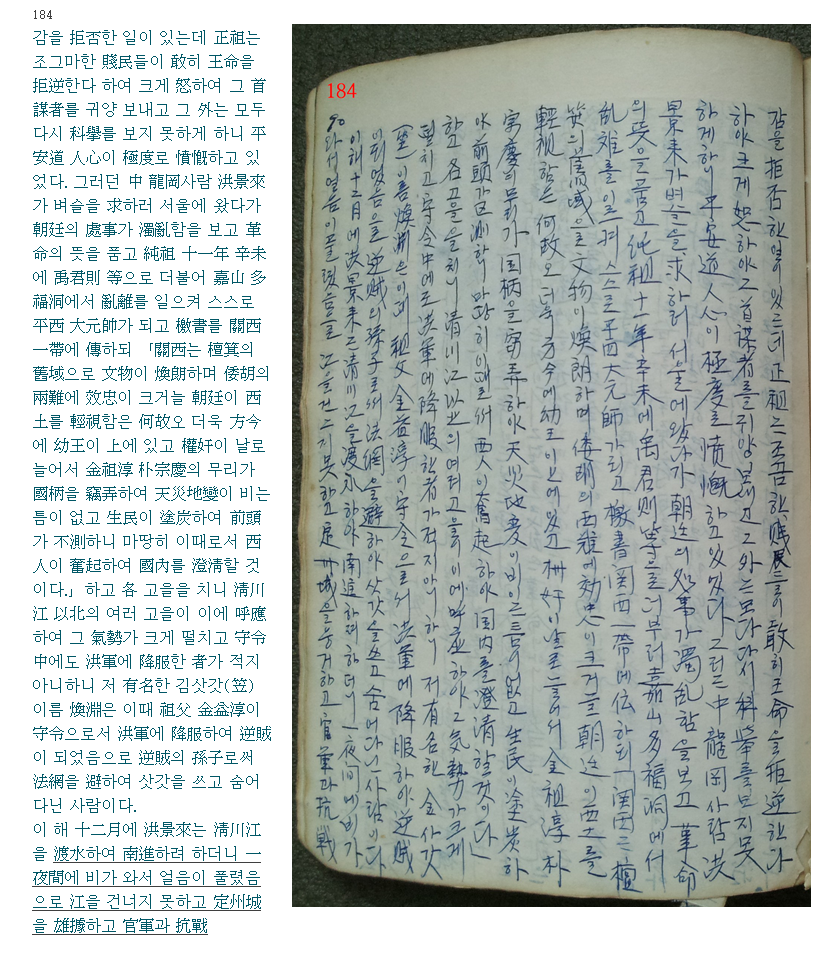 184
감을 拒否한 일이 있는데 正祖는
조그마한 賤民들이 敢히 王命을
拒逆한다 하여 크게 怒하여 그 首
謀者를 귀양 보내고 그 外는 모두
다시 科擧를 보지 못하게 하니 平
安道 人心이 極度로 憤慨하고 있
었다. 그러던 中 龍岡사람 洪景來
가 벼슬을 求하러 서울에 왔다가
朝廷의 處事가 濁亂함을 보고 革
命의 뜻을 품고 純祖 十一年 辛未
에 禹君則 等으로 더불어 嘉山 多
福洞에서 亂離를 일으켜 스스로
平西 大元帥가 되고 檄書를 關西
一帶에 傳하되 「關西는 檀箕의
舊域으로 文物이 煥朗하며 倭胡의
兩難에 效忠이 크거늘 朝廷이 西
土를 輕視함은 何故오 더욱 方今
에 幼王이 上에 있고 權奸이 날로
늘어서 金祖淳 朴宗慶의 무리가
國柄을 竊弄하여 天災地變이 비는
틈이 없고 生民이 塗炭하여 前頭
가 不測하니 마땅히 이때로서 西
人이 奮起하여 國內를 澄淸할 것
이다.」 하고 各 고을을 치니 淸川
江 以北의 여러 고을이 이에 呼應
하여 그 氣勢가 크게 떨치고 守令
中에도 洪軍에 降服한 者가 적지
아니하니 저 有名한 김삿갓(笠)
이름 煥淵은 이때 祖父 金益淳이
守令으로서 洪軍에 降服하여 逆賊
이 되었음으로 逆賊의 孫子로써
法網을 避하여 삿갓을 쓰고 숨어
다닌 사람이다.
이 해 十二月에 洪景來는 淸川江
을 渡水하여 南進하려 하더니 一
夜間에 비가 와서 얼음이 풀렸음
으로 江을 건너지 못하고 定州城
을 雄據하고 官軍과 抗戰
184
감을 拒否한 일이 있는데 正祖는 조끔한 賤民들이 敢히 王命을 拒逆한다
하야 크게 怒하야 그 首謀者를 귀양보내고 그 外는 모다 다시 科擧를 보지 못
하게 하니 平安道 人心이 極度로 憤慨하고 있었다 그런드 中 龍岡사람 洪
景来가 벼슬을 求하러 서울에 왔다가 朝廷의 処事가 濁乱함을 보고 革命
의 뜻을 품고 純祖 十一年 辛未에 禹君則 等으로 더부러 嘉山 多福洞에서
乱離를 이르켜 스스로 平西大元帥가 되고 檄書 関西一帶에 伝하되 「関西는 檀
箕의 舊域으로 文物이 煥朗하며 倭胡의 両難에 効忠이 크거늘 朝廷이 西土를
輕視함은 何故오 더욱 方今에 幼王이 上에 있고 権奸이 날로 늘어서 金祖淳 朴
宗慶의 무리가 国柄을 窃弄하야 天災地変이 비이는 틈이 없고 生民이 塗炭하
야 前頭가 不測하니 마땅히 이때로써 西人이 奮起하야 国内를 澄清할 것이다」
하고 各 고을을 치니 清川江 以北의 여러 고을이 이에 呼应하야 그 気勢가 크게
떨치고 守令中에도 洪軍에 降服한 者가 적지 아니하니 저 有名한 金사갓
(笠) 이름 煥淵은 이때 祖父 金益淳이 守令으로서 洪軍에 降服하야 逆賊
이 되였음을 逆賊의 孫子로써 法網을 避하야 삿갓을 쓰고 숨어다니 사람이다
이 해 十二月에 洪景来는 清川江을 渡水하야 南進하려 하더니 一夜间에 비가
와서 얼음이 풀렸음을로 江을 건느지 못하고 定州城을 雄據하고 官軍과 抗戰
90